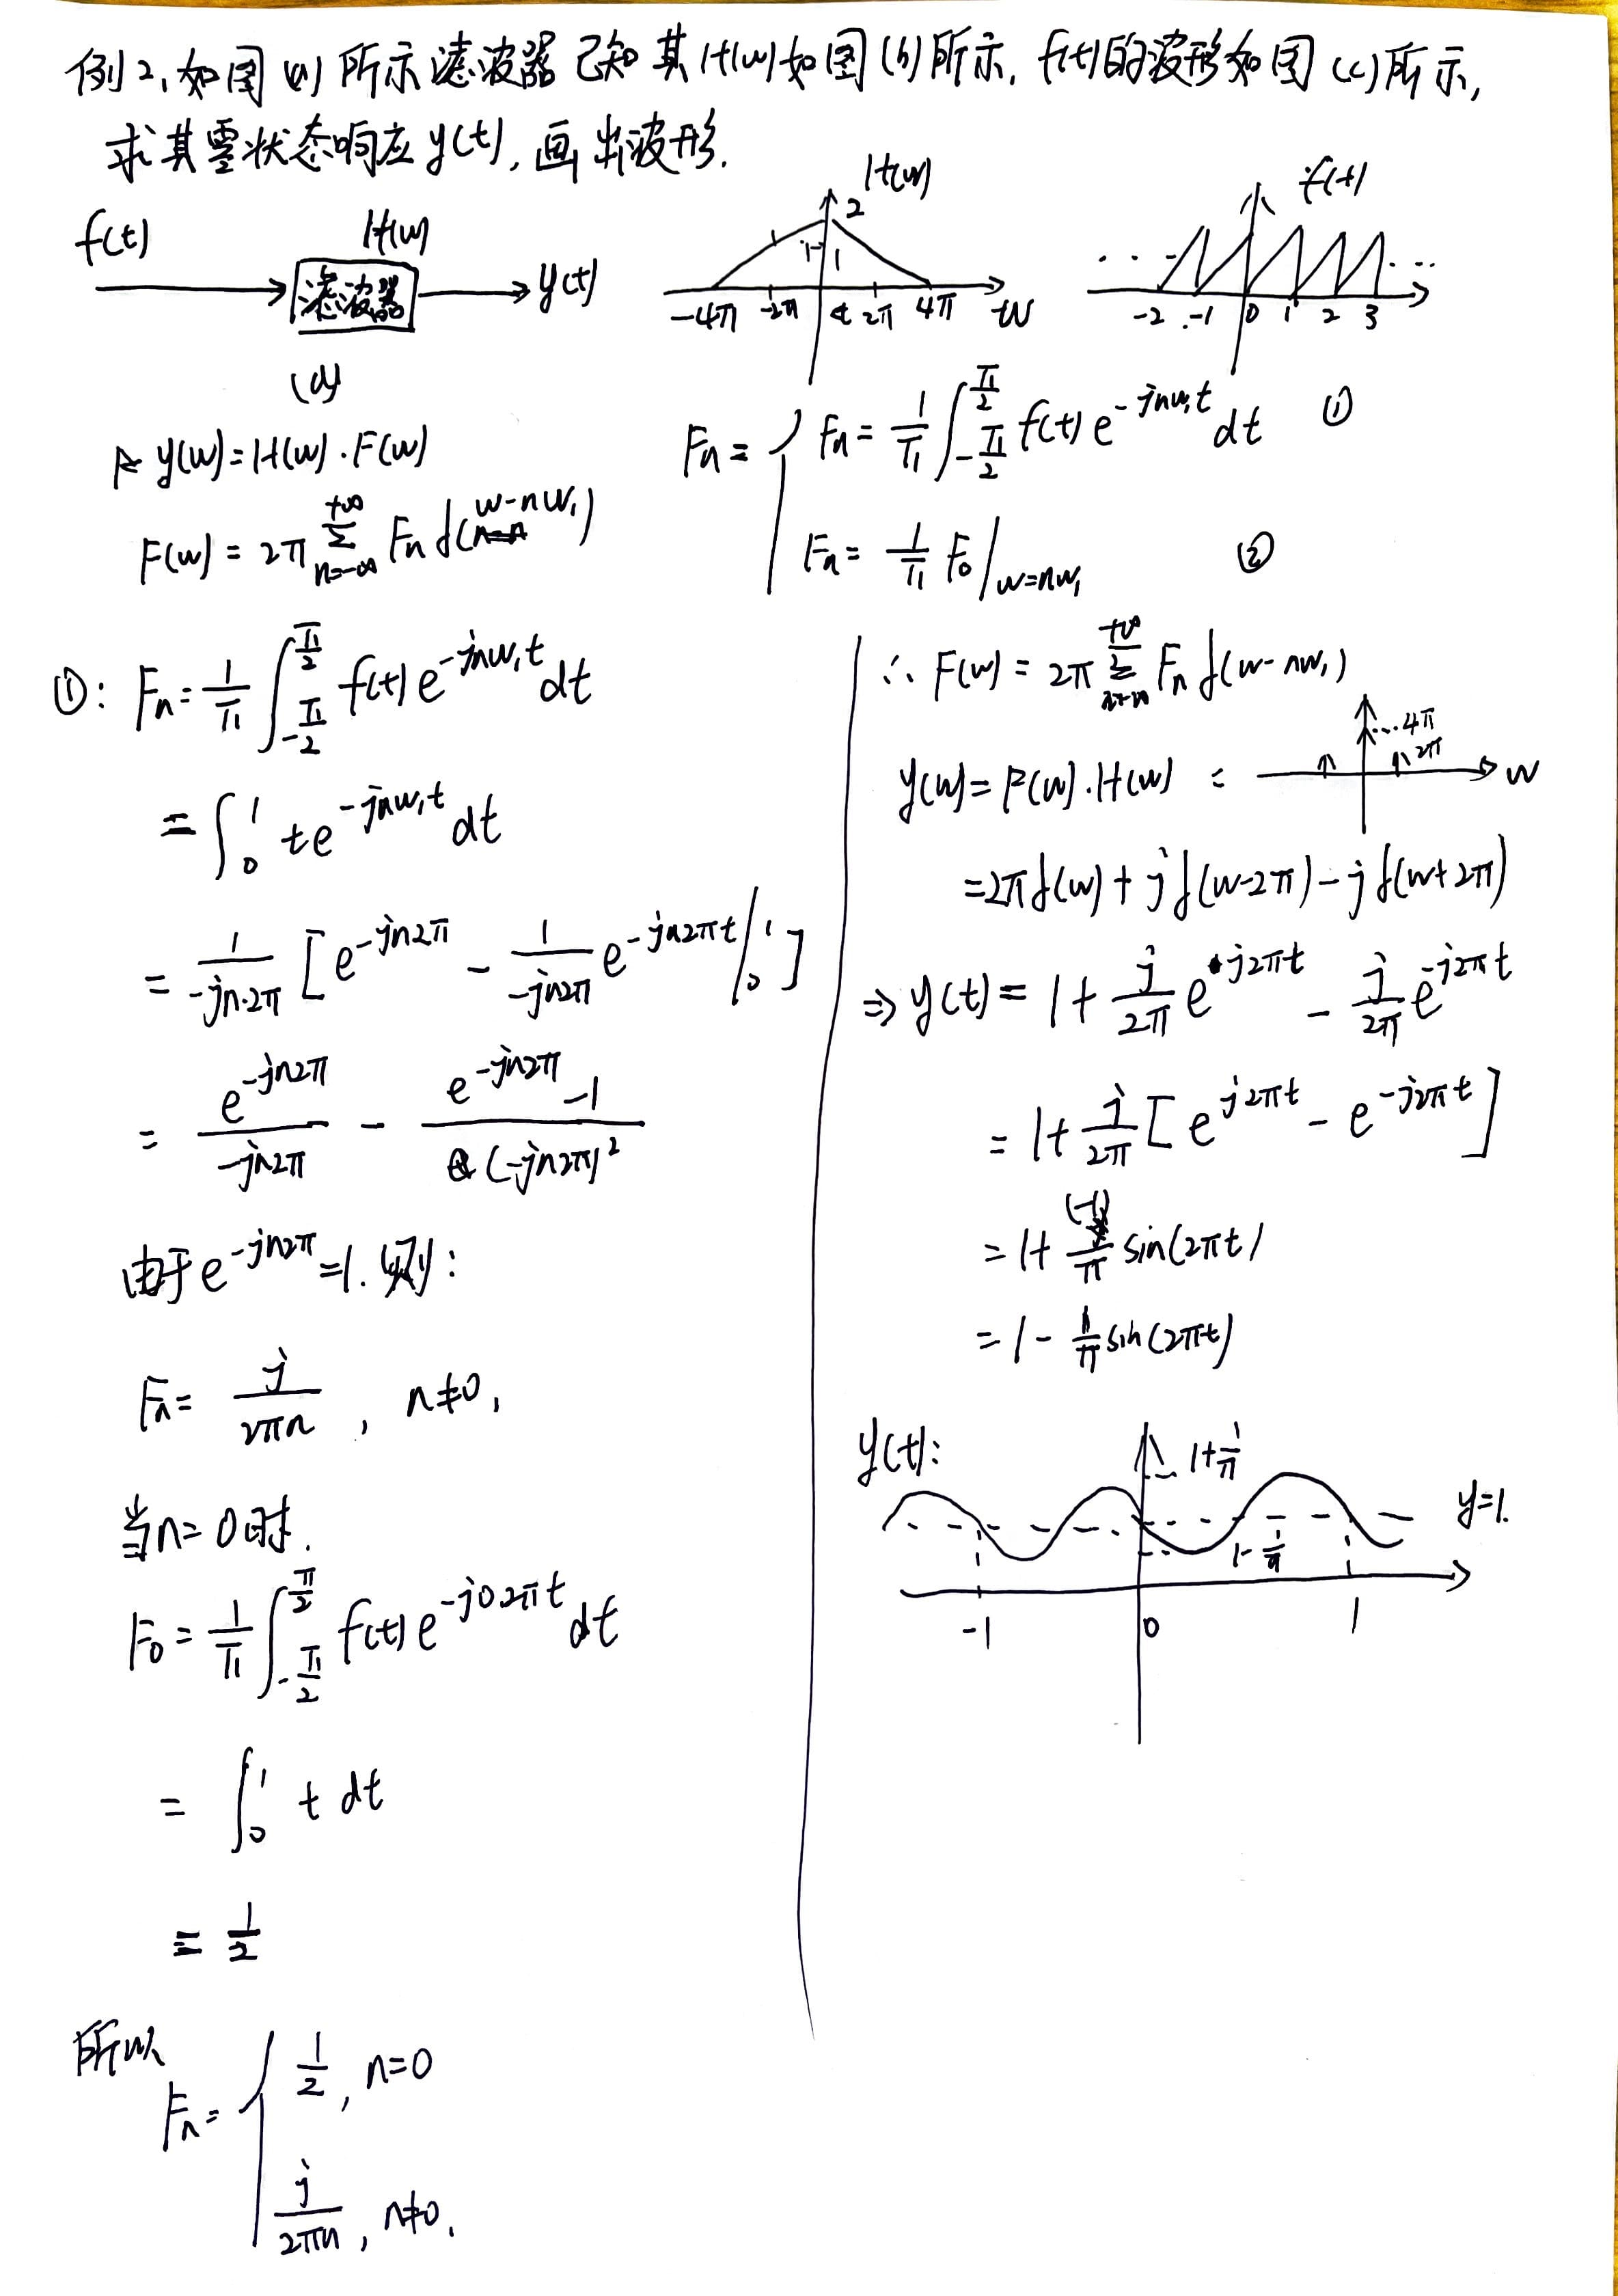 例2、如图(a)所示滤波器已知其H(w)如图(b)所示, f(t)的波形如图(c)所示,
求其零状态响应y(t), 画出波形.
f(t) H(w) 滤波器 y(t)
(a)
H(w) 2 1 1 -4π -2π 2π 4π w
f(t) ... ... -2 -1 0 1 2 3
y(w)=H(w)·F(w)
F(w) = 2π Σ_{n=-∞}^{+∞} Fn δ(w-nw₁)
Fn = { Fn = 1/T₁ ∫_{-T₁/2}^{T₁/2} f(t) e^{-jnw₁t} dt ①
Fn = 1/T₁ F₀ |_{w=nw₁} ②
①: Fn = 1/T₁ ∫_{-T₁/2}^{T₁/2} f(t) e^{-jnw₁t} dt
= ∫₀¹ t e^{-jnw₁t} dt
= 1/(-jn·2π) [ e^{-jn2π} - 1/(-jn2π) e^{-jn2πt} |₀¹ ]
= e^{-jn2π}/(-jn2π) - (e^{-jn2π}-1)/(-jn2π)²
由于e^{-jn2π}=1. 则:
Fn = j/(2πn), n≠0,
当n=0时.
F₀ = 1/T₁ ∫_{-T₁/2}^{T₁/2} f(t) e^{-j0.2πt} dt
= ∫₀¹ t dt
= 1/2
所以
Fn = { 1/2, n=0
j/(2πn), n≠0.
∴ F(w) = 2π Σ_{n=-∞}^{+∞} Fn δ(w-nw₁)
y(w) = F(w)·H(w) = ...4π 2π w
=2πδ(w)+jδ(w-2π)-jδ(w+2π)
⇒ y(t) = 1 + j/2π e^{j2πt} - j/2π e^{-j2πt}
= 1 + j/2π [ e^{j2πt} - e^{-j2πt} ]
= 1 + (-1)/π sin(2πt)
= 1 - 1/π sin(2πt)
y(t): 1+1/π y=1. 1-1/π -1 0 1